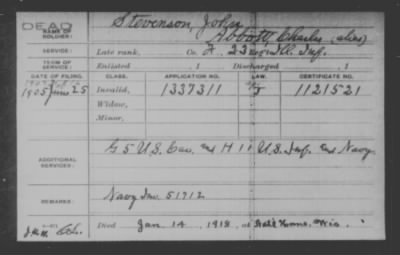 DEAD
NAME OF SOLDIER: Stevenson, John
Abbott, Charles (alias)
SERVICE: Late rank, Co. F, 23 Reg't Ill. Inf.
TERM OF SERVICE: Enlisted , 1 Discharged , 1
DATE OF FILING. CLASS. APPLICATION NO. LAW. CERTIFICATE NO.
1905 June 25 Invalid, 1337311 1121521
Widow,
Minor,
ADDITIONAL SERVICES: G 5 U.S. Cav. and H 11 U.S. Inf. and Navy.
REMARKS: Navy Inv. 51912
Died Jan 14, 1918, at Nat'l Home, Wis.